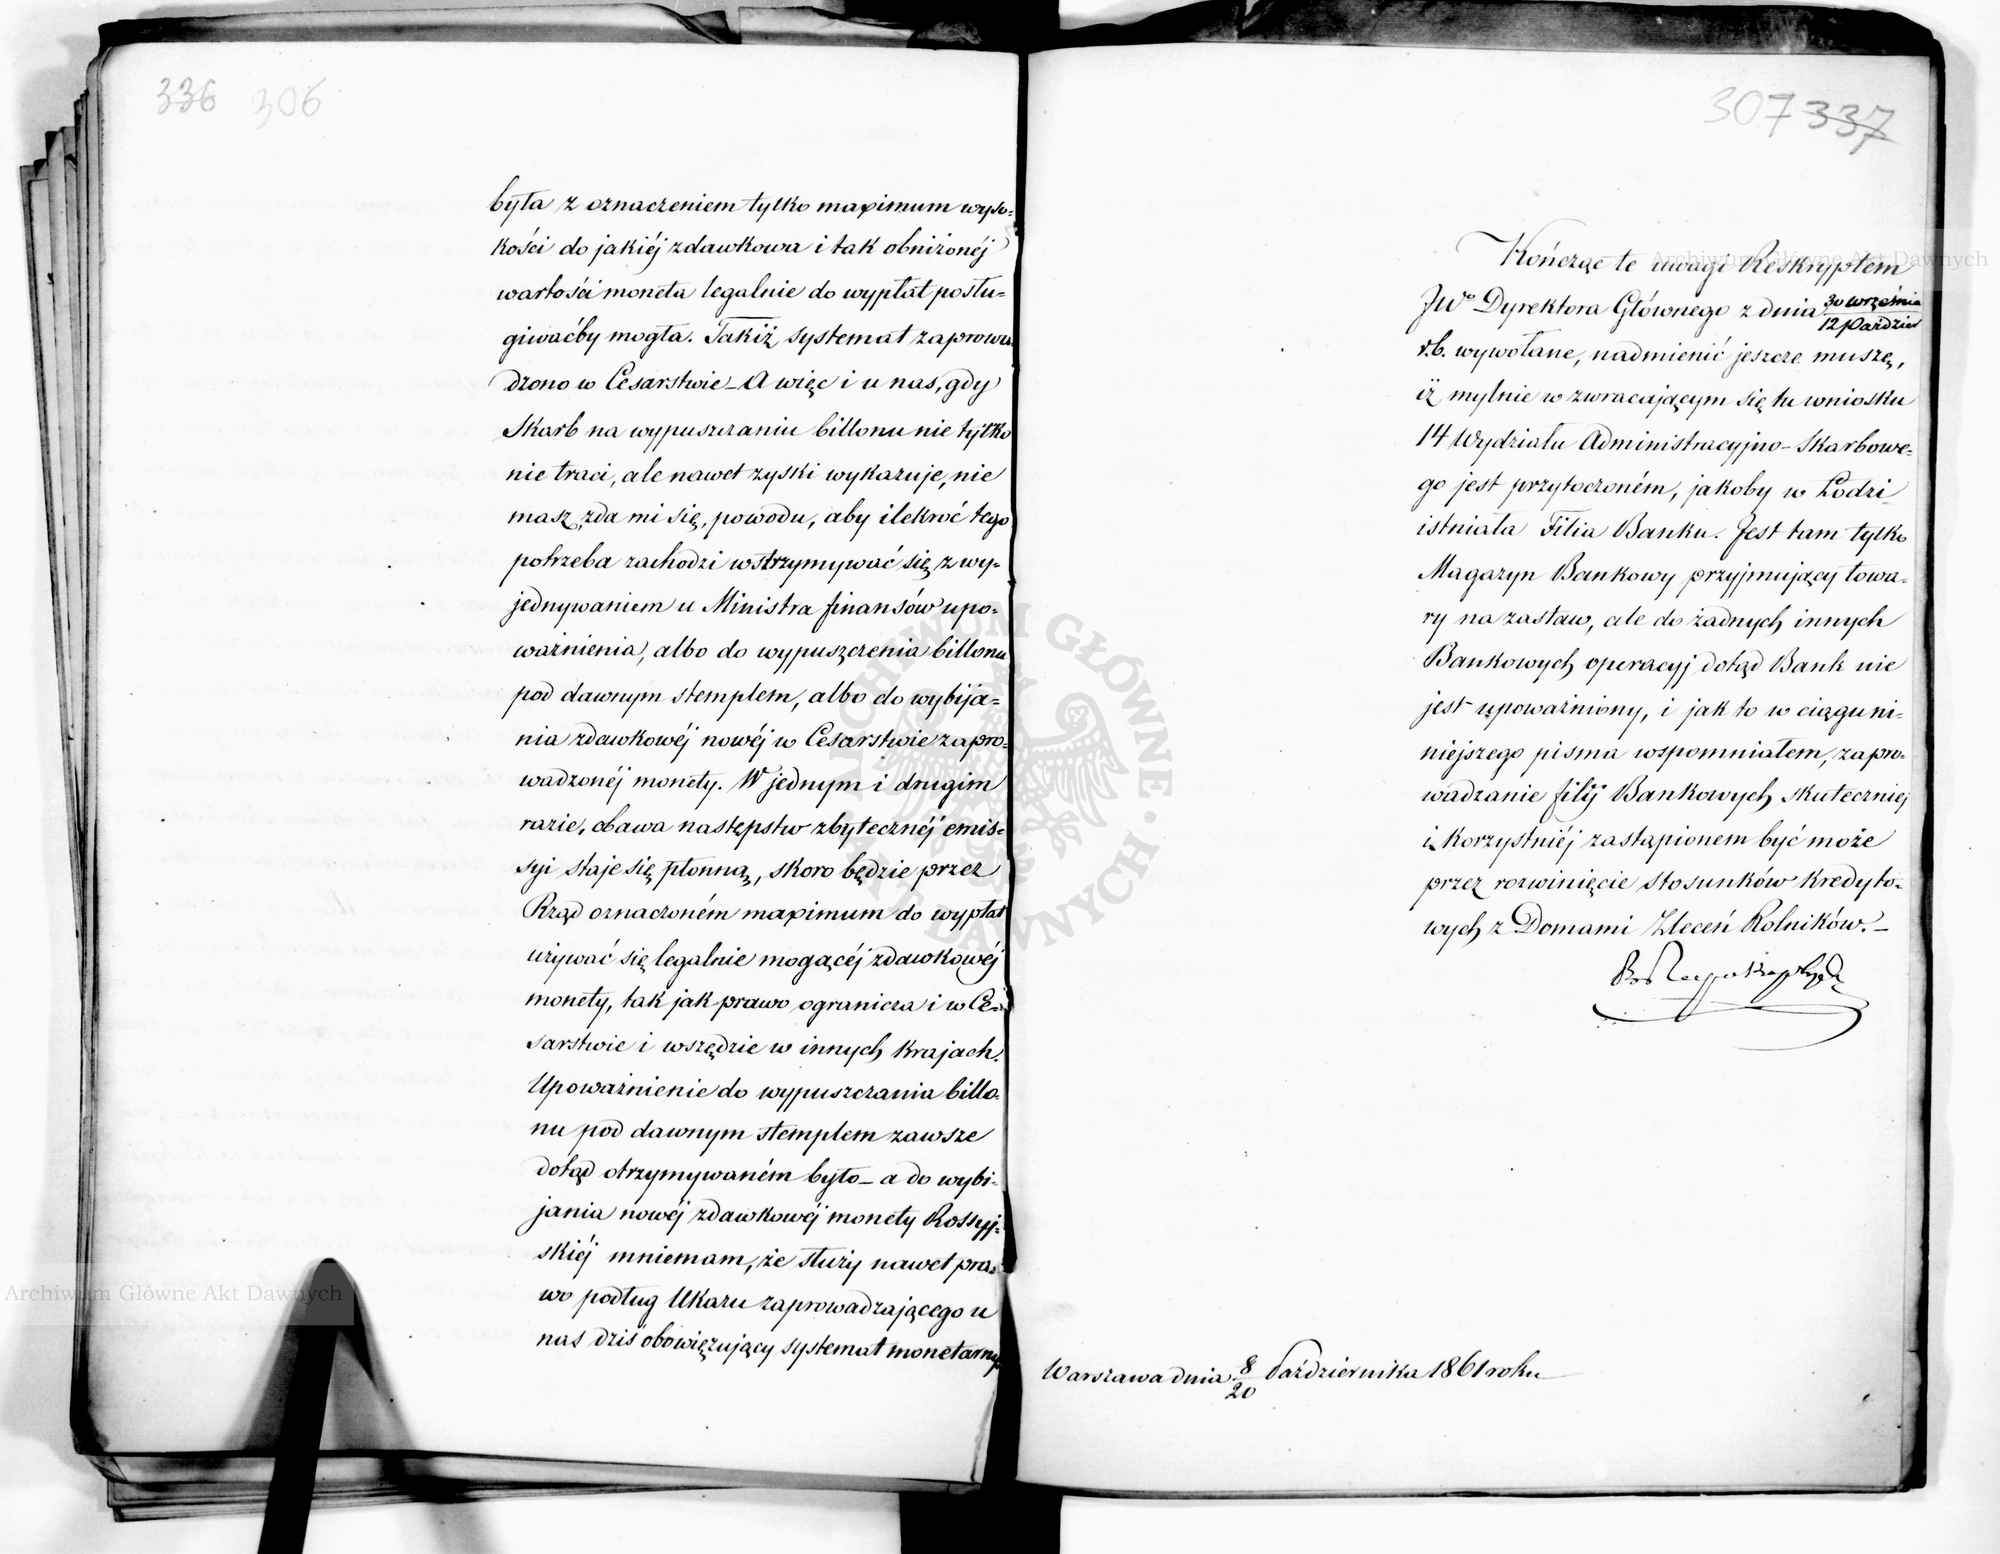 336 306
była z oznaczeniem tylko maximum wyso=
kości do jakiéj zdawkowa i tak obniżonéj
wartości moneta legalnie do wypłat posłu=
giwaćby mogła. Takiż systemat zaprowa
dzono w Cesarstwie_ A więc i u nas, gdy
Skarb na wypuszczaniu billonu nie tylko
nie traci, ale nawet zyski wykazuje, nie
masz, zda mi się, powodu, aby ilekroć tego
potrzeba zachodzi wstrzymywać się z wy=
jednywaniem u Ministra finansów upo=
ważnienia, albo do wypuszczenia billonu
pod dawnym stemplem, albo do wybija=
nia zdawkowéj nowéj w Cesarstwie zapro=
wadzonéj monety. W jednym i drugim
razie, obawa następstw zbytecznéj emis=
syi staje się płonną, skoro będzie przez
Rząd oznaczoném maximum do wypłat
używać się legalnie mogącéj zdawkowéj
monety, tak jak prawo ogranicza i w Ce=
sarstwie i wszędzie w innych krajach.
Upoważnienie do wypuszczania billo=
nu pod dawnym stemplem zawsze
dotąd otrzymywaném było_ a do wybi=
jania nowéj zdawkowéj monety Rossyj=
skiéj mniemam, że służy nawet pra=
wo podług Ukazu zaprowadzającego u
nas dziś obowięzujący systemat monetarny
307 337
Kończąc te uwagi Reskryptem
JWo Dyrektora Głównego z dnia 30 września
12 Paździer
r.b. wywołane, nadmienić jeszcze muszę,
iż mylnie w zwracającym się tu wniosku
14 Wydziału Administracyjno-Skarbowe=
go jest przytoczoném, jakoby w Łodzi
istniała Filia Banku. Jest tam tylko
Magazyn Bankowy przyjmujący towa=
ry na zastaw, ale do żadnych innych
Bankowych operacyj dotąd Bank nie
jest upoważniony, i jak to w ciągu ni=
niejszego pisma wspomniałem, zapro=
wadzanie filij Bankowych skuteczniej
i korzystniéj zastąpionem być może
przez rozwinięcie stosunków kredyto=
wych z Domami Zleceń Rolników._
Warszawa dnia 8/20 Października 1861 roku
Archiwum Główne Akt Dawnych
Archiwum Główne Akt Dawnych
ARCHIWUM GŁÓWNE AKT DAWNYCH